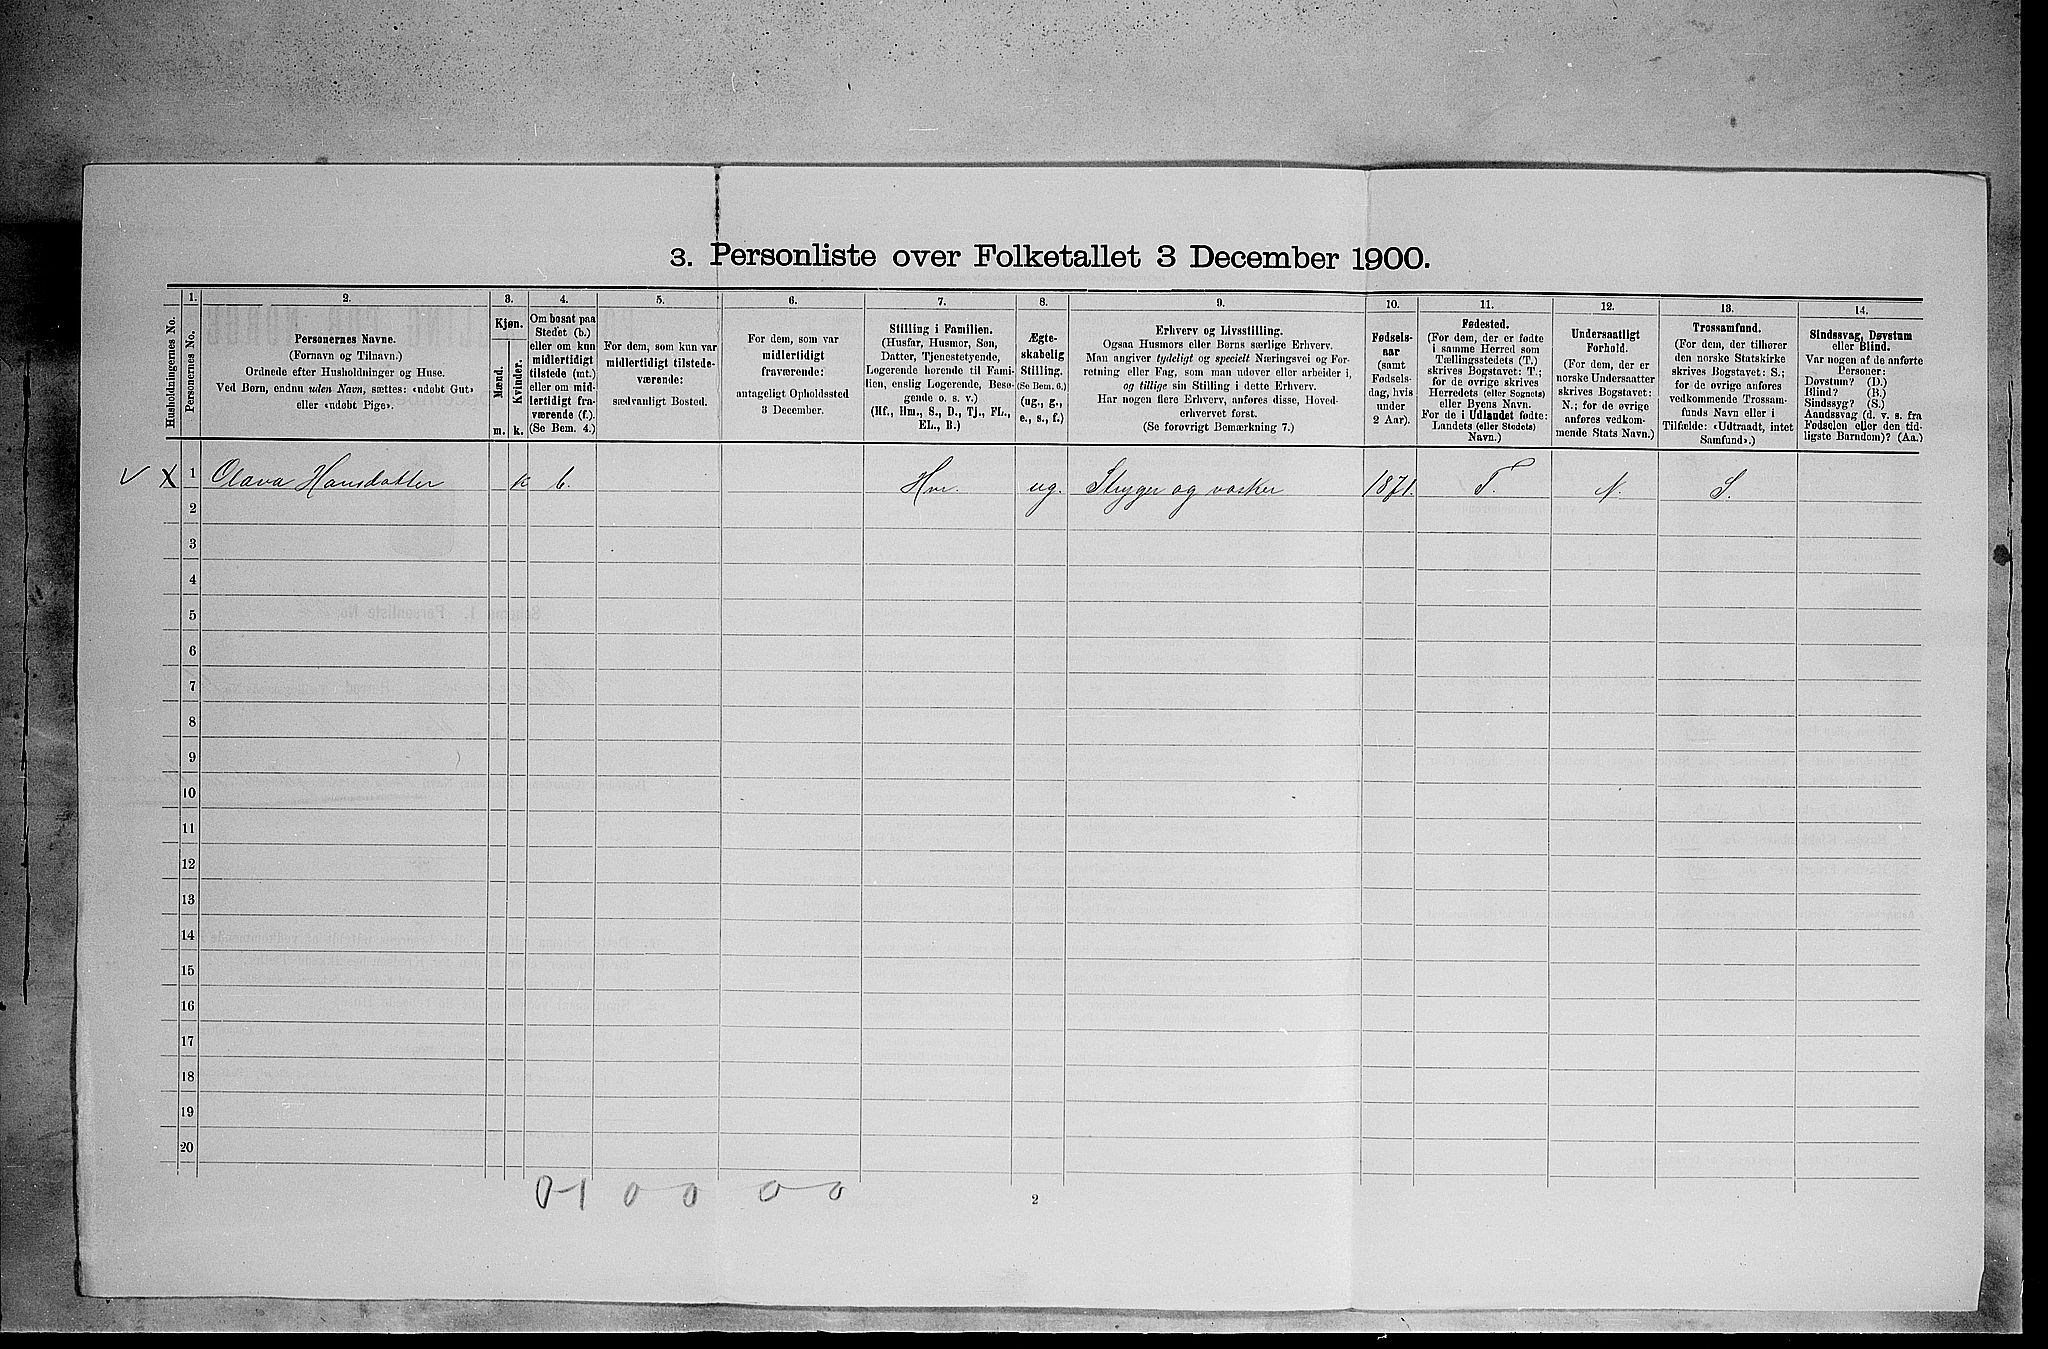 3. Personliste over Folketallet 3 December 1900.
Husholdningernes No.
1.
Personernes No.
2.
Personernes Navne.
(Fornavn og Tilnavn.)
Ordnede efter Husholdninger og Huse.
Ved Børn, endnu uden Navn, sættes: «udøbt Gut»
eller «udøbt Pige».
3.
Kjøn.
Mænd.
Kvinder.
m.
k.
4.
Om bosat paa
Stedet (b.)
eller om kun
midlertidigt
tilstede (mt.)
eller om mid-
lertidigt fra-
værende (f.).
(Se Bem. 4.)
5.
For dem, som kun var
midlertidigt tilstede-
værende:
sædvanligt Bosted.
6.
For dem, som var
midlertidigt
fraværende:
antageligt Opholdssted
3 December.
7.
Stilling i Familien.
(Husfar, Husmor, Søn,
Datter, Tjenestetyende,
Logerende hørende til Fami-
lien, enslig Logerende, Besø-
gende o. s. v.)
(Hf., Hm., S., D., Tj., FL.,
EL., B.)
8.
Ægte-
skabelig
Stilling.
(Se Bem. 6.)
(ug., g.,
e., s., f.)
9.
Erhverv og Livsstilling.
Ogsaa Husmors eller Børns særlige Erhverv.
Man angiver tydeligt og specielt Næringsvei og For-
retning eller Fag, som man udøver eller arbeider i,
og tillige sin Stilling i dette Erhverv.
Har nogen flere Erhverv, anføres disse, Hoved-
erhvervet først.
(Se forøvrigt Bemærkning 7.)
10.
Fødsels-
aar
(samt
Fødsels-
dag, hvis
under
2 Aar).
11.
Fødested.
(For dem, der er fødte
i samme Herred som
Tællingsstedets (T.)
skrives Bogstavet: T.;
for de øvrige skrives
Herredets (eller Sognets)
eller Byens Navn.
For de i Udlandet fødte:
Landets (eller Stedets)
Navn.)
12.
Undersaatligt
Forhold.
(For dem, der er
norske Undersaatter
skrives Bogstavet:
N.; for de øvrige
anføres vedkom-
mende Stats Navn.)
13.
Trossamfund.
(For dem, der tilhører
den norske Statskirke
skrives Bogstavet: S.;
for de øvrige anføres
vedkommende Trossam-
funds Navn eller i
Tilfælde: «Udtraadt, intet
Samfund».)
14.
Sindssvag, Døvstum
eller Blind.
Var nogen af de anførte
Personer:
Døvstum? (D.)
Blind? (B.)
Sindssyg? (S.)
Aandssvag (d. v. s. fra
Fødselen eller den tid-
ligste Barndom)? (Aa.)
✓ X 1 Olava Hansdatter k b. Hm. ug. Stryger og vasker 1871. T. N. S.
2
3
4
5
6
7
8
9
10
11
12
13
14
15
16
17
18
19
20
0-1 0 0 0 0
2